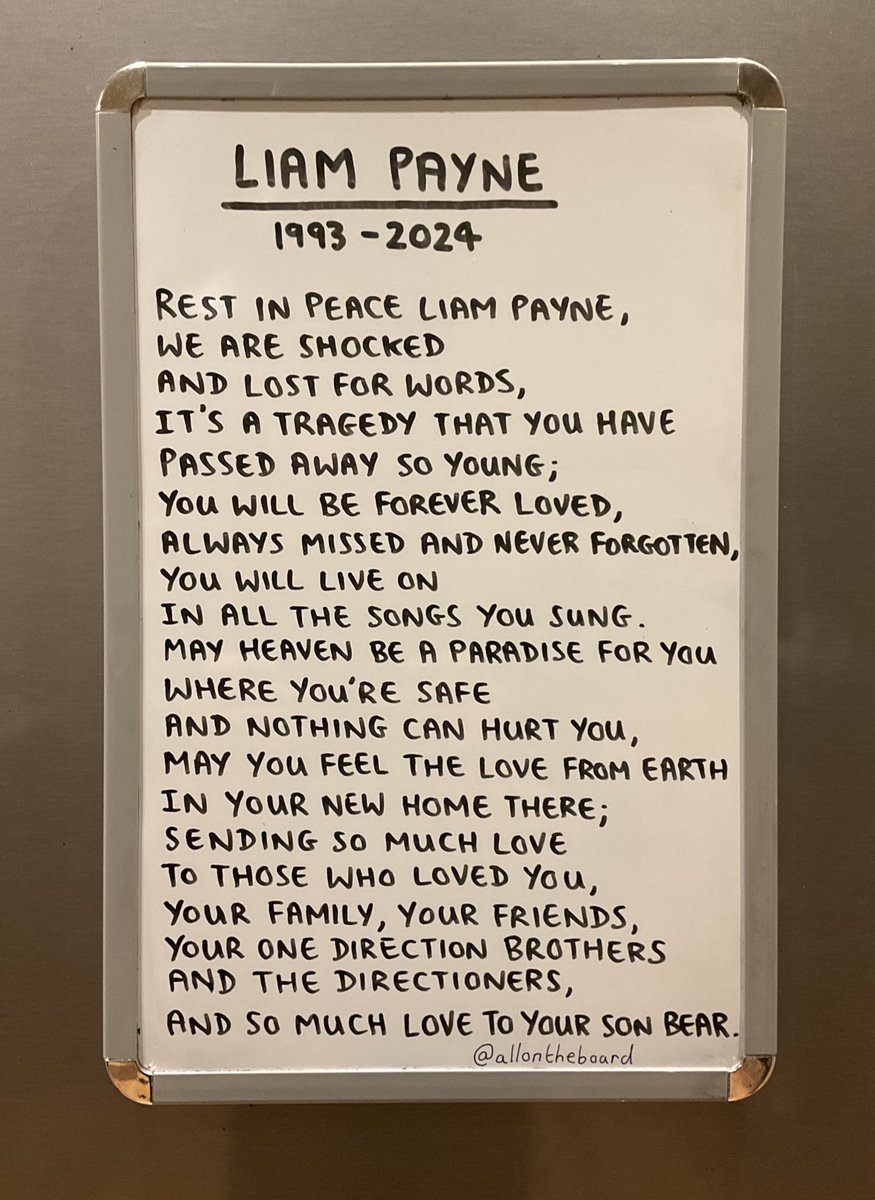 LIAM PAYNE
1993 - 2024
REST IN PEACE LIAM PAYNE,
WE ARE SHOCKED
AND LOST FOR WORDS,
IT'S A TRAGEDY THAT YOU HAVE
PASSED AWAY SO YOUNG;
YOU WILL BE FOREVER LOVED,
ALWAYS MISSED AND NEVER FORGOTTEN,
YOU WILL LIVE ON
IN ALL THE SONGS YOU SUNG.
MAY HEAVEN BE A PARADISE FOR YOU
WHERE YOU'RE SAFE
AND NOTHING CAN HURT YOU,
MAY YOU FEEL THE LOVE FROM EARTH
IN YOUR NEW HOME THERE;
SENDING SO MUCH LOVE
TO THOSE WHO LOVED YOU,
YOUR FAMILY, YOUR FRIENDS,
YOUR ONE DIRECTION BROTHERS
AND THE DIRECTIONERS,
AND SO MUCH LOVE TO YOUR SON BEAR.
@allontheboard